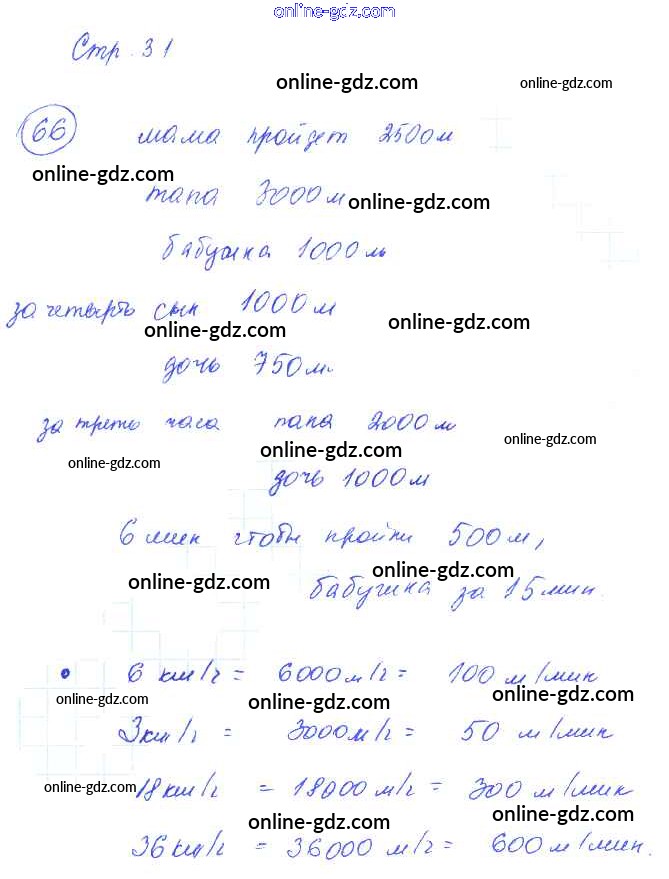 online-gdz.com
Стр. 31
online-gdz.com
online-gdz.com
66 мама пройдет 2500 м
online-gdz.com
папа 3000 м
online-gdz.com
бабушка 1000 м
за четверть сын 1000 м
online-gdz.com
online-gdz.com
дочь 750 м.
за треть часа папа 2000 м
online-gdz.com
online-gdz.com
online-gdz.com
дочь 1000 м
6 мин чтобы пройти 500 м,
online-gdz.com
online-gdz.com
бабушка за 15 мин.
6 км/ч = 6000 м/ч = 100 м/мин
online-gdz.com
online-gdz.com
online-gdz.com
3 км/ч = 3000 м/ч = 50 м/мин
online-gdz.com
18 км/ч = 18000 м/ч = 300 м/мин
online-gdz.com
online-gdz.com
36 км/ч = 36000 м/ч = 600 м/мин.